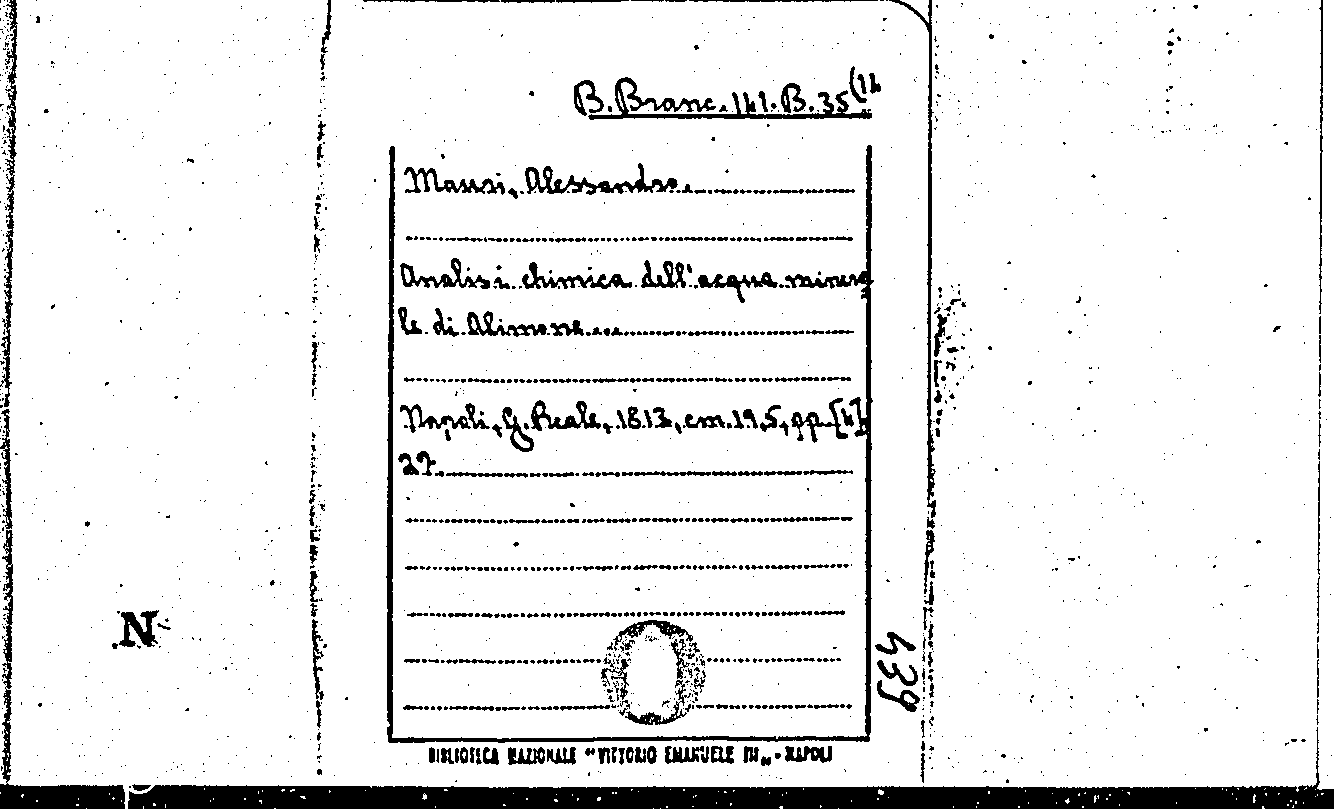 B. Branc. 141. B. 35 (14
Mauri, Alessandro.
Analisi chimica dell'acqua minera
le di Alimone...
Napoli, G. Reale, 1813, cm. 19,5, pp. [4],
27.
N
439
BIBLIOTECA NAZIONALE "VITTORIO EMANUELE III„ - NAPOLI